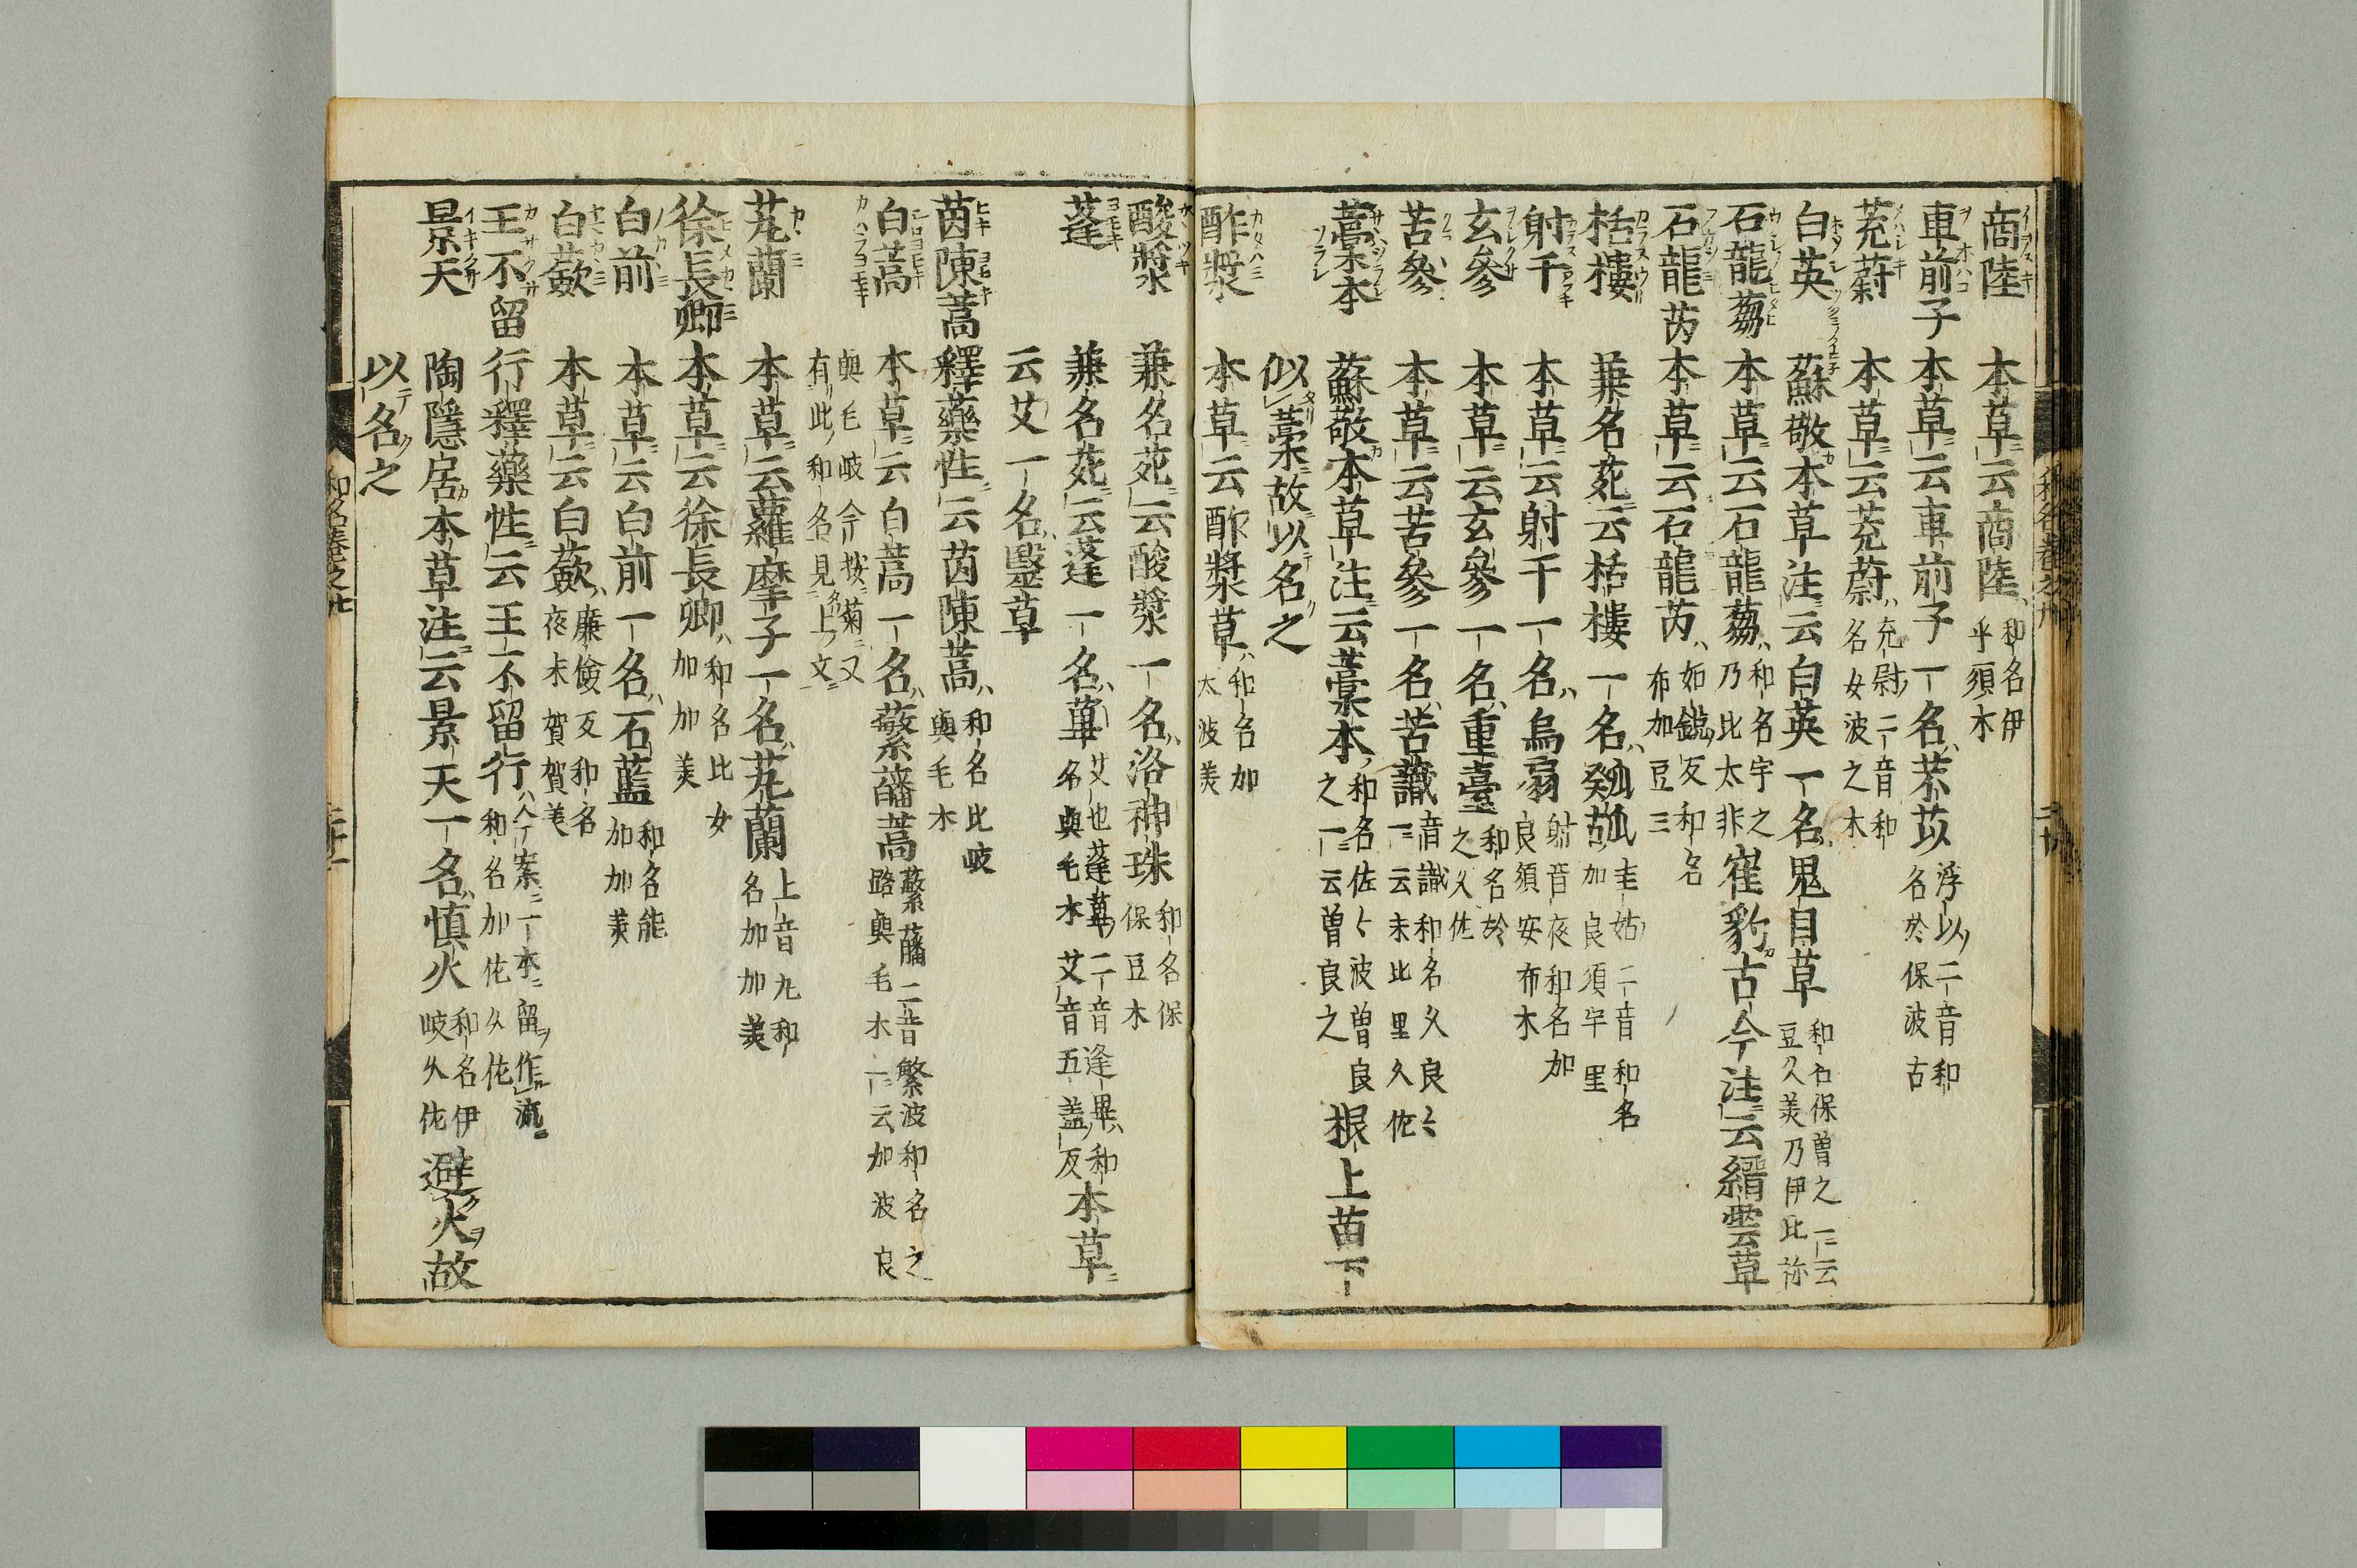 商陸 本草云商陸 和名伊乎須木
車前子 本草云車前子一名芣苡 浮以二音和名於保波古
茺蔚 本草云茺蔚 充尉二音和名女波之木
白英 蘇敬本草注云白英一名鬼目草 和名保曽之一云豆久美乃伊比祢
石龍蒭 本草云石龍蒭 和名宇之乃比太非 崔豹古今注云縉雲草
石龍芮 本草云石龍芮 如鋭反和名布加豆三
栝樓 兼名苑云栝樓一名 圭姑二音和名加良須宇里
射干 本草云射干一名烏扇 射音夜和名加良須安布木
玄參 本草云玄參一名重臺 和名於之久佐
苦參 本草云苦參一名苦䜟 音識和名久良々一云末比里久佐
藁本 蘇敬本草注云藁本 和名佐々波曽良之一云曽良之 根上苗下
似藁故以名之
酢漿 本草云酢漿草 和名加太波美
酸漿 兼名苑云酸漿一名洛神珠 和名保保豆木
蓬 兼名苑云蓬一名蓽 艾也蓬蓽二音逢畢和名與毛木艾音五盖反 本草
云艾一名毉草
茵陳蒿 釋藥性云茵陳蒿 和名比岐與毛木
白蒿 本草云白蒿一名蘩皤蒿 蘩皤二音繁波和名之路與毛木一云加波良
與毛岐今按菊又有此和名見上文
芄蘭 本草云蘿摩子一名芄蘭 上音丸和名加加美
徐長卿 本草云徐長卿 和名比女加加美
白前 本草云白前一名石藍 和名能加加美
白蘞 本草云白蘞 廉儉反和名夜末賀賀美
王不留行 釋藥性云王不留行 今案一本留作流和名加佐久佐
景天 陶隱居本草注云景天一名愼火 和名伊岐久佐 避火故
以名之
和名卷之廿